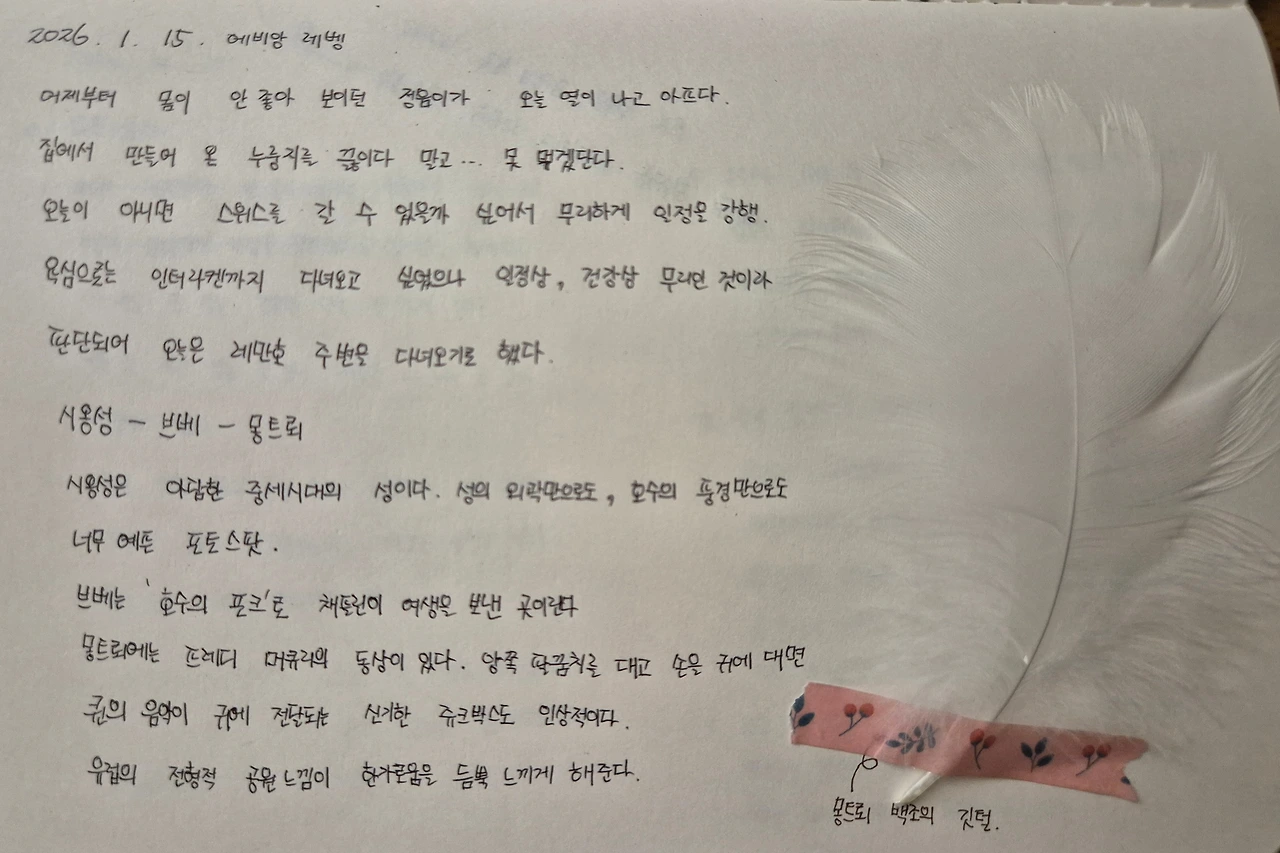 2026. 1. 15. 에비앙 레벵
어제부터 몸이 안 좋아 보이던 정음이가 오늘 열이 나고 아프다.
집에서 만들어 온 누룽지를 끓이다 말고... 못 먹겠단다.
오늘이 아니면 스위스를 갈 수 있을까 싶어서 무리하게 일정을 강행.
욕심으로는 인터라켄까지 다녀오고 싶었으나 일정상, 건강상 무리인 것이라
판단되어 오늘은 레만호 주변을 다녀오기로 했다.
시옹성 - 브베 - 몽트뢰
시옹성은 아담한 중세시대의 성이다. 성의 외곽만으로도, 호수의 풍경만으로도
너무 예쁜 포토스팟.
브베는 '호수의 포크'로 채플린이 여생을 보낸 곳이란다
몽트뢰에는 프레디 머큐리의 동상이 있다. 양쪽 팔꿈치를 대고 손을 귀에 대면
퀸의 음악이 귀에 전달되는 신기한 쥬크박스도 인상적이다.
유럽의 전형적 공원 느낌이 한가로움을 듬뿍 느끼게 해준다.
몽트뢰 백조의 깃털.